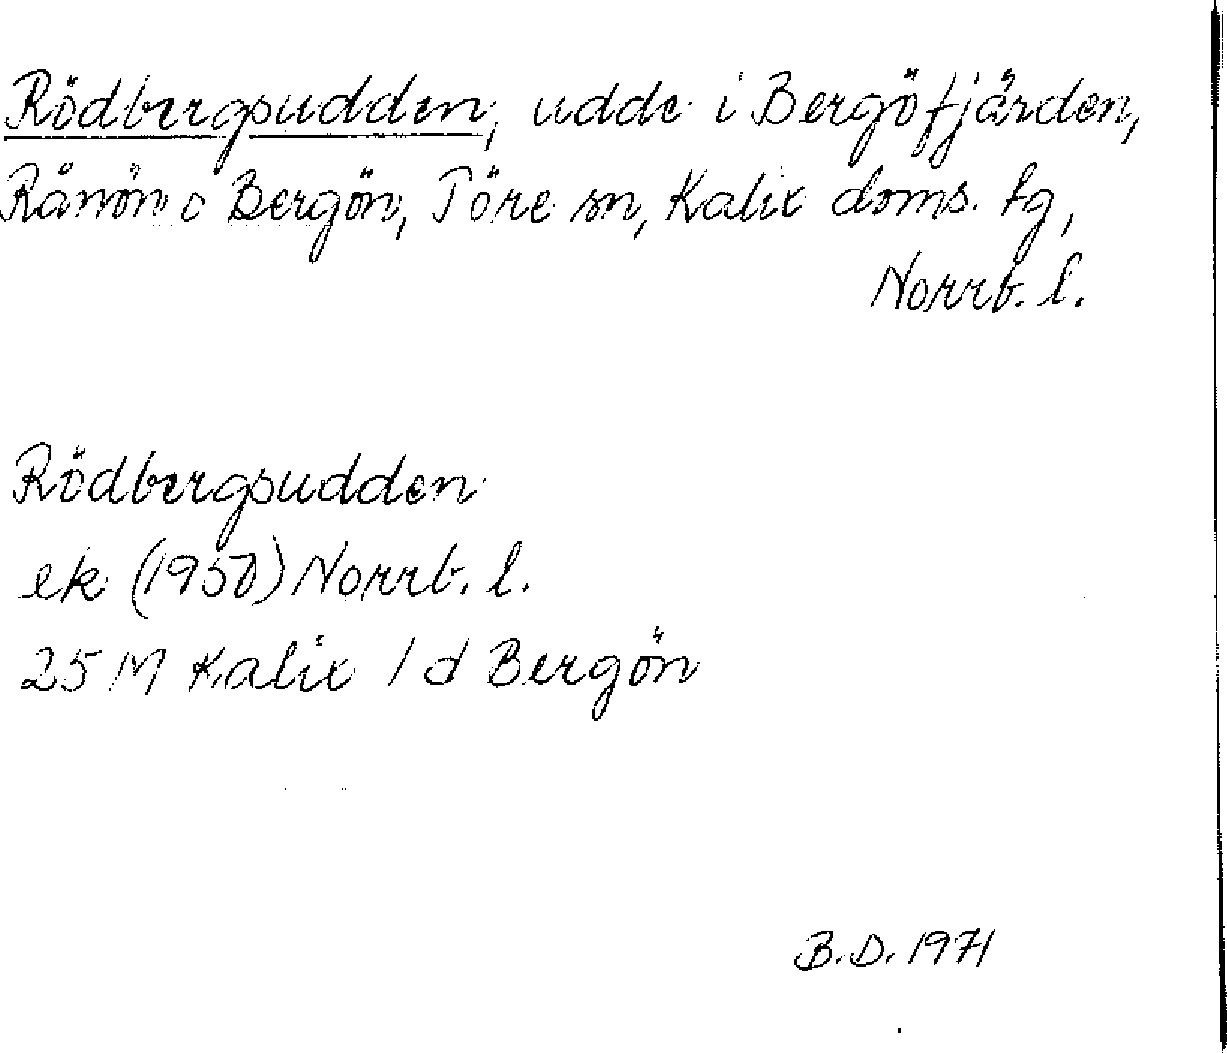 Rödbergsudden, udde i Bergöfjärden,
Rånön o Bergön, Töre sn, Kalix doms. tg,
Norrb. l.
Rödbergsudden
ek (1950) Norrb. l.
25 M Kalix 1 d Bergön
B.D. 1971